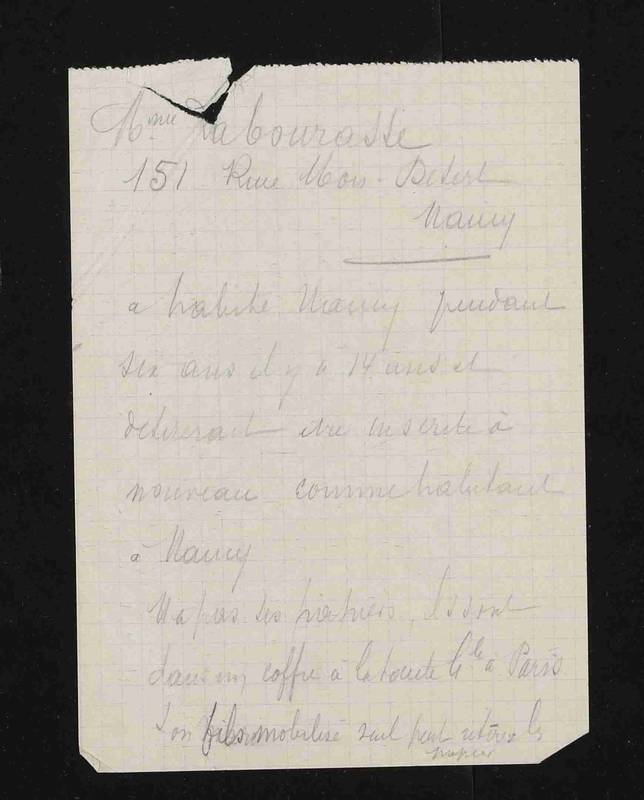 Mme Labourasse
151 Rue Mon-Désert
Nancy
a habité Nancy pendant
six ans il y a 14 ans et
désirerait être inscrite à
nouveau comme habitant
à Nancy
N'a pas ses papiers, ils sont
dans un coffre à la Société Gle à Paris
Son fils mobilisé seul peut retirer les
papiers